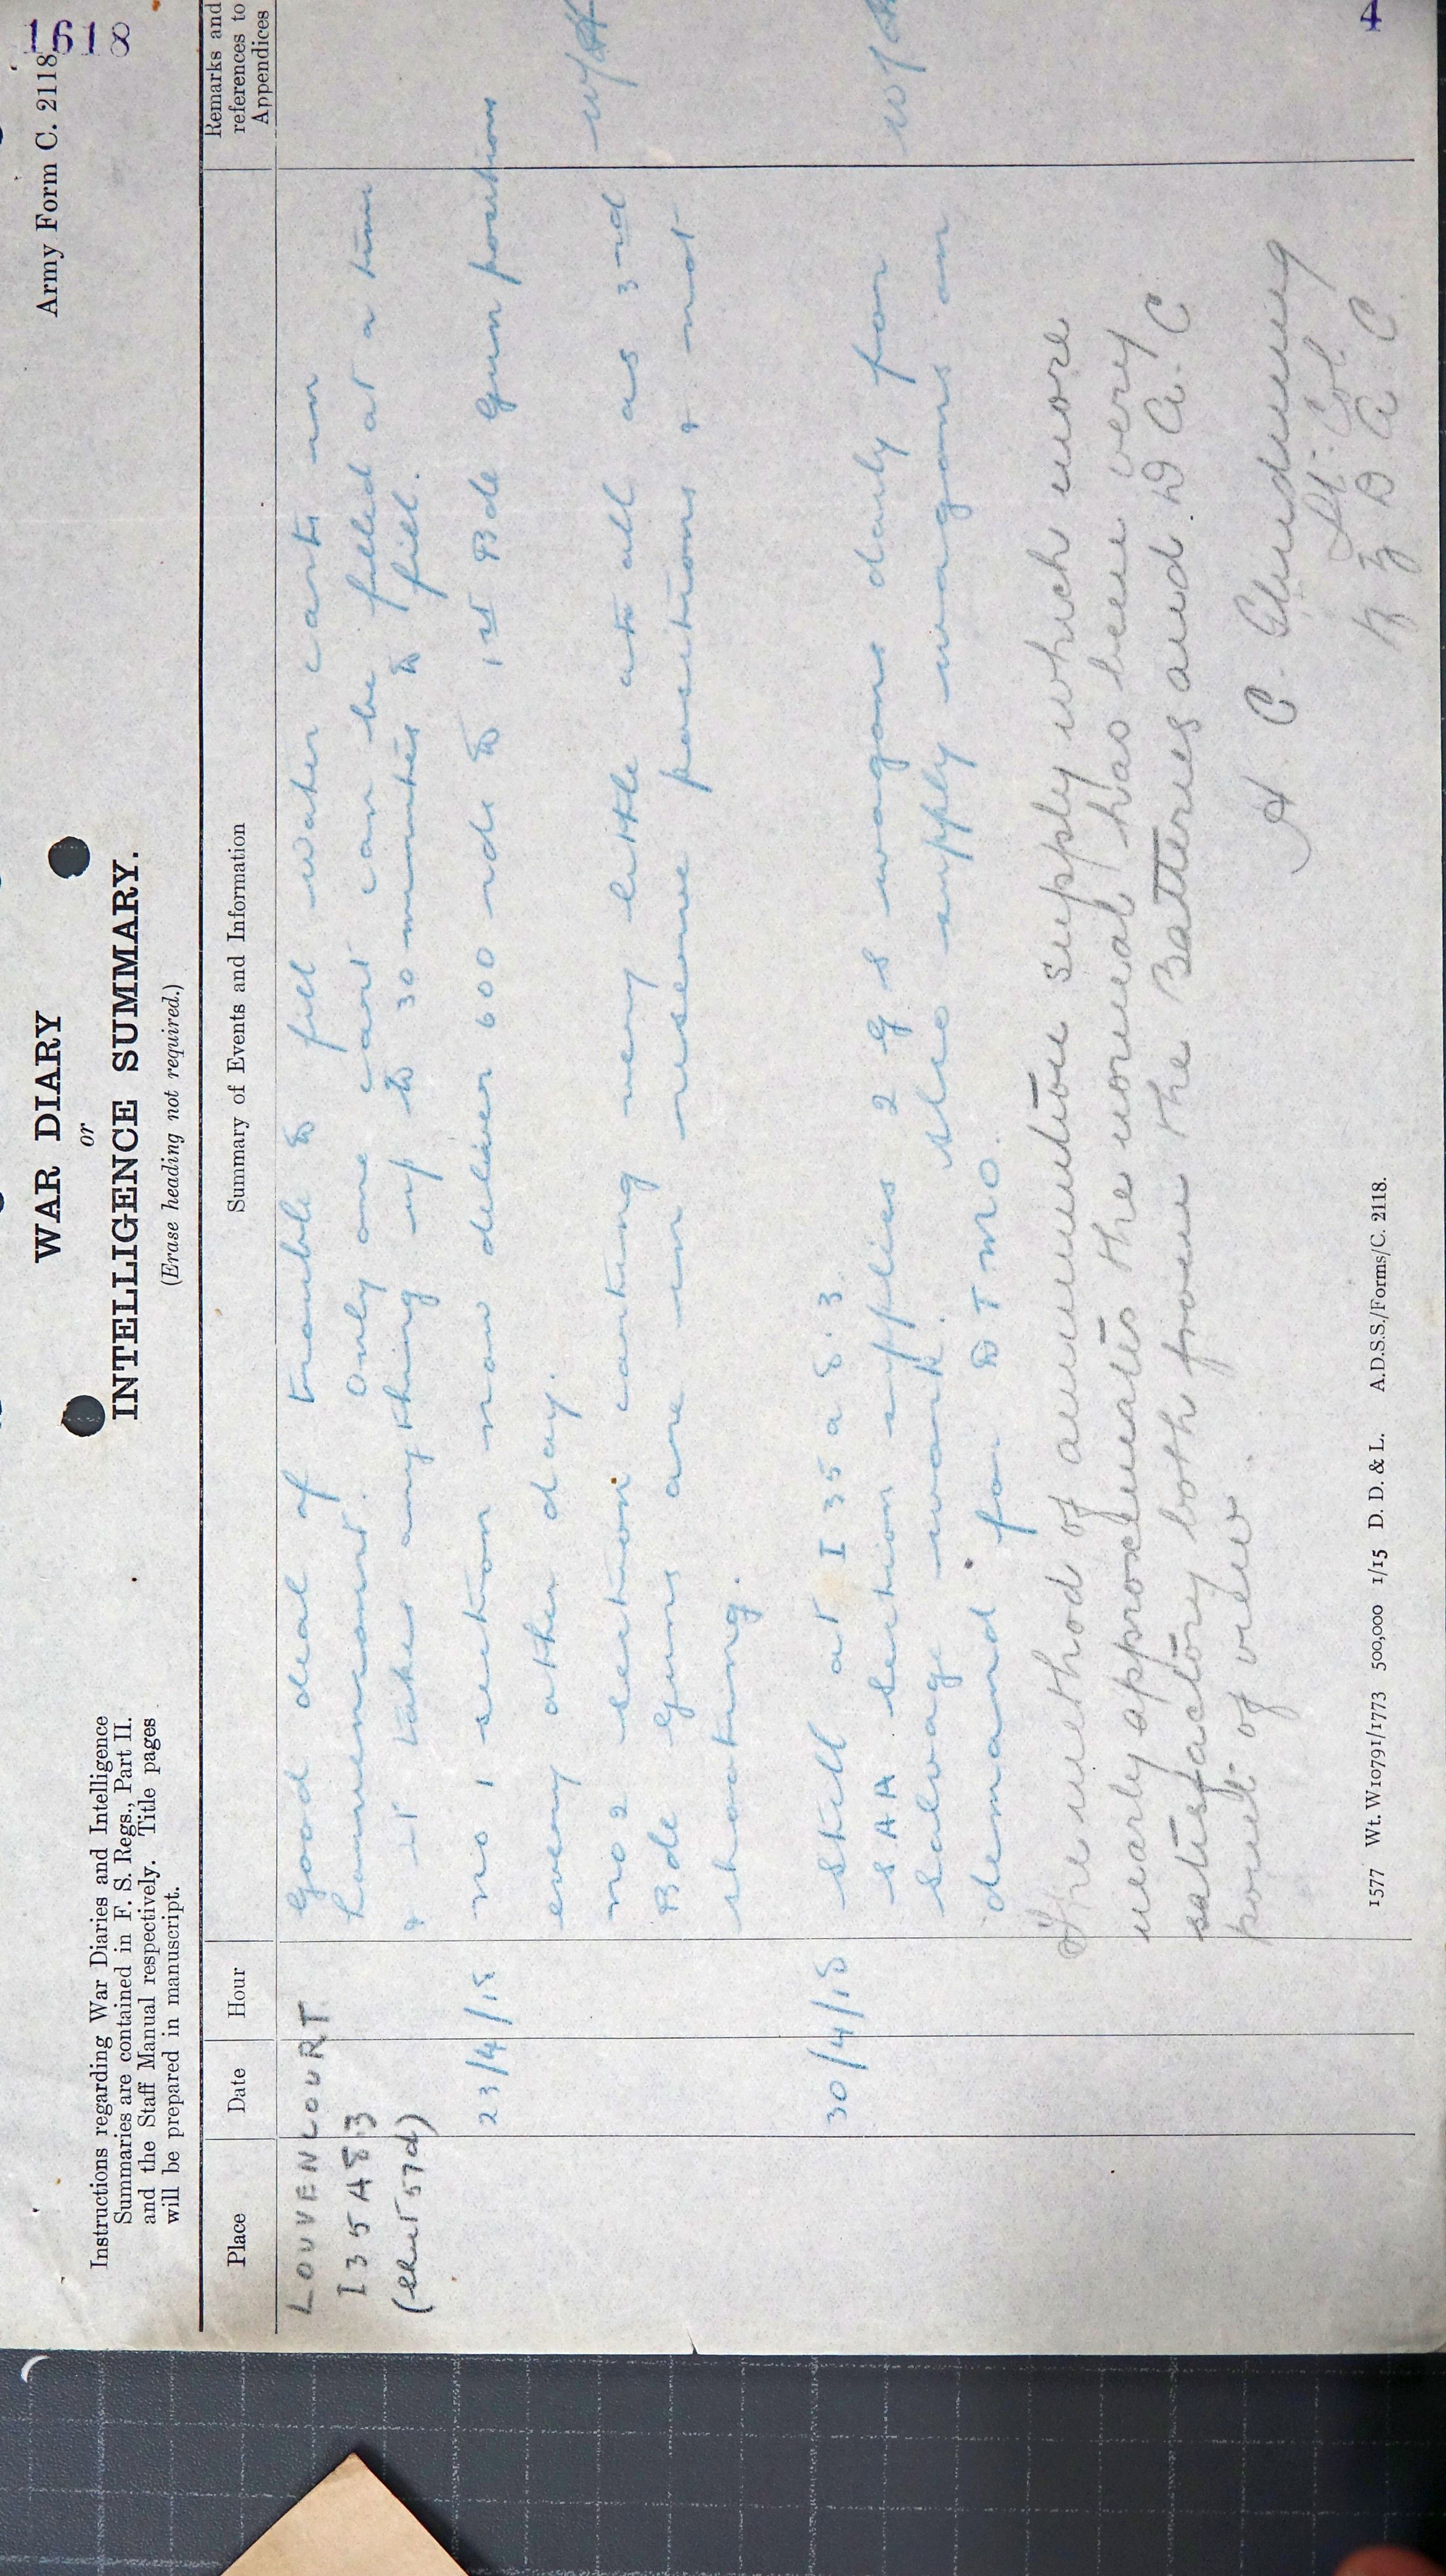 1618
Army Form C. 2118
WAR DIARY
or
INTELLIGENCE SUMMARY.
(Erase heading not required.)
Instructions regarding War Diaries and Intelligence
Summaries are contained in F. S. Regs., Part II.
and the Staff Manual respectively. Title pages
will be prepared in manuscript.
Place Date Hour Summary of Events and Information Remarks and
references to
Appendices
LOUVENCOURT good deal of trouble to fill water carts in
I 35 A 8.3 Louvencourt. Only one cart can be filled at a time
(sheet 57d) & it takes anything up to 30 minutes to fill.
23/4/18 no 1 section now deliver 600 rds to 1st Bde Gun positions
every other day.
no 2 section carting very little at all as 3rd
Bde Guns are in reserve positions & not
shooting.
30/4/18 Still at I 35 a 8.3
SAA section supplies 2 G S wagons daily for
salvage work. Also supply wagons on
demand for DTMO.
The method of ammunition supply which more
nearly approximates the normal has been very
satisfactory both from the Batteries and D.A.C
point of view.
A C Glendining
Lt. Col
N Z D A C
1577 Wt. W10791/1773 500,000 1/15 D. D. & L. A.D.S.S./Forms/C. 2118.
4